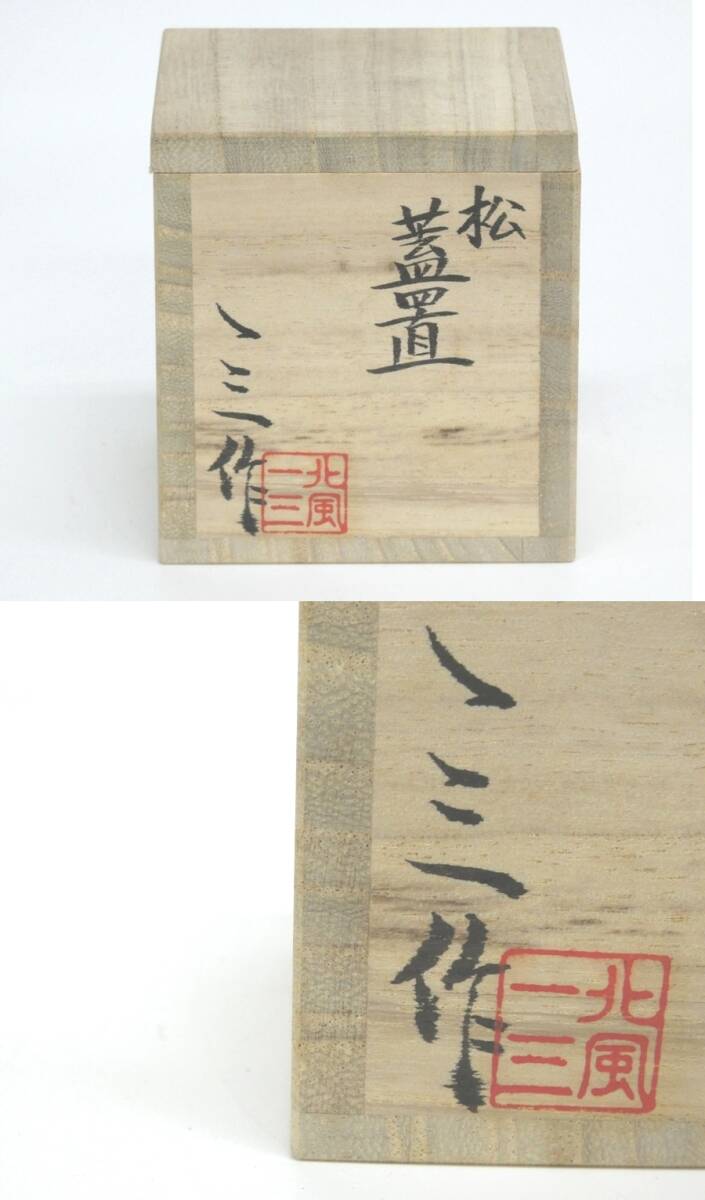 松
蓋置
一三作
北風
一三
一三作
北風
一三